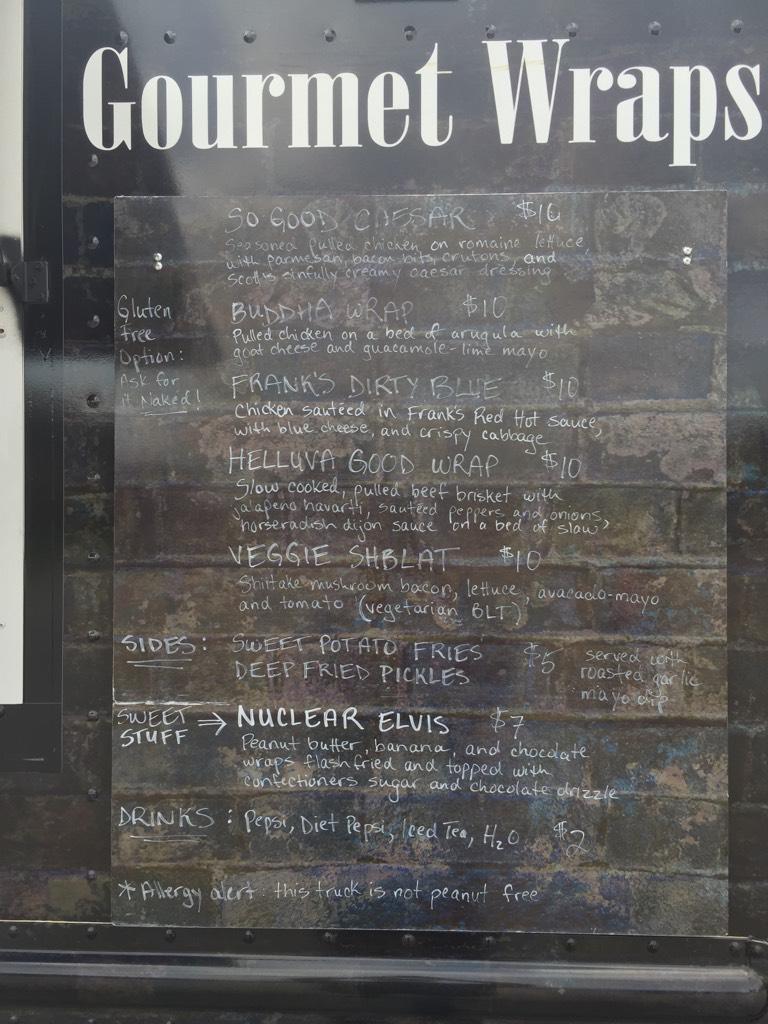 Gourmet Wraps
SO GOOD CAESAR $10
Seasoned pulled chicken on romaine lettuce
with parmesan, bacon bits, crutons, and
Scott's sinfully creamy caesar dressing
Gluten
Free
Option:
Ask for
it Naked!
BUDDHA WRAP $10
Pulled chicken on a bed of arugula with
goat cheese and guacamole-lime mayo
FRANK'S DIRTY BLUE $10
Chicken sautéed in Frank's Red Hot sauce,
with blue cheese, and crispy cabbage
HELLUVA GOOD WRAP $10
Slow cooked, pulled beef brisket with
jalapeno havarti, sautéed peppers and onions,
horseradish dijon sauce on a bed of slaw
VEGGIE SHBLAT $10
Shiitake mushroom bacon, lettuce, avacado-mayo
and tomato (vegetarian BLT)
SIDES: SWEET POTATO FRIES $5
DEEP FRIED PICKLES
served with
roasted garlic
mayo dip
SWEET STUFF → NUCLEAR ELVIS $7
Peanut butter, banana, and chocolate
wraps flash fried and topped with
confectioners sugar and chocolate drizzle
DRINKS: Pepsi, Diet Pepsi, Iced Tea, H₂O $2
*Allergy alert: this truck is not peanut free